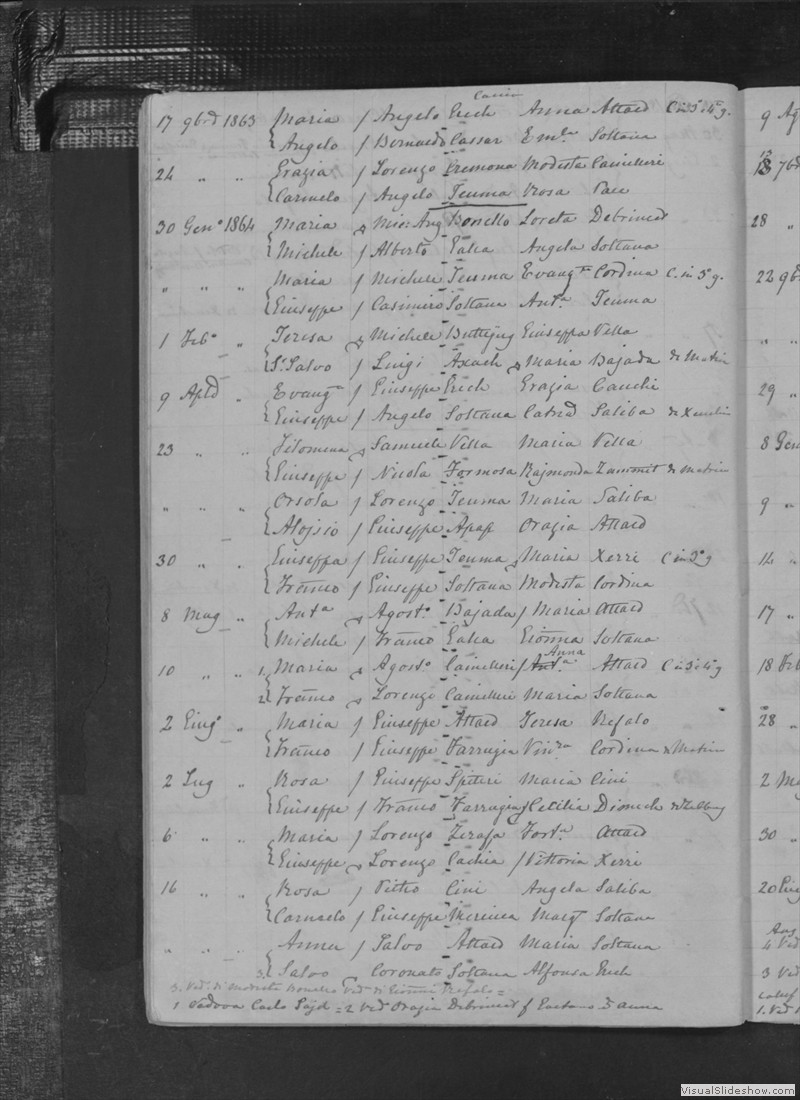 Cassia
17 9brd 1863 Maria / Angelo Grech Anna Attard C in 3° e 4° g.
Angelo / Bernardo Cassar Em.la Soltana
24 " " Grazia / Lorenzo Cremona Modesta Camilleri
Carmelo / Angelo Teuma Rosa Pace
30 Gen° 1864 Maria Mic: Ang Bonello Loreta Debrincat
Michele / Alberto Galea Angela Soltana
" " " Maria / Michele Teuma Evang.ta Cordina C. in 3° g.
Giuseppe / Casimiro Soltana Ant.a Teuma
1 Feb° " Teresa Michele Buttigieg Giuseppa Vella
Salvo / Luigi Axach Maria Bajada di Matrice
9 Aple " Evang.ta / Giuseppe Grech Grazia Cauchi
Giuseppe / Angelo Soltana Catna Saliba di Xeuchia
23 " " Filomena Samuele Vella Maria Vella
Giuseppe / Nicola Formosa Rajmonda Zammit di Matrice
" " " Orsola / Lorenzo Teuma Maria Saliba
Aloisio / Giuseppe Apap Grazia Attard
30 " " Giuseppa / Giuseppe Teuma Maria Xerri C in 3° g
Franco / Giuseppe Soltana Modesta Cordina
8 Mag " Ant.a Agost.o Bajada / Maria Attard
Michele / Franco Galea Gionna Soltana
Anna
10 " " 1. Maria Agost.o Camilleri / Ant.a Attard C in 3° e 4° g
2. Franco Lorenzo Camilleri Maria Soltana
2 Giug° " Maria / Giuseppe Attard Teresa Refalo
Franco / Giuseppe Farrugia Vin.za Cordina di Matrice
2 Lug " Rosa / Giuseppe Spiteri Maria Cini
Giuseppe / Franco Farrugia Cecilia Dimech di Zebbug
6 " " Maria / Lorenzo Zerafa Fort.a Attard
Giuseppe Lorenzo Cachia / Vittoria Xerri
16 " " Rosa / Pietro Cini Angela Saliba
Carmelo / Giuseppe Mercieca Marg.ta Soltana
" " " Anna / Salvo Attard Maria Soltana
3. Salvo Coronato Soltana Alfonsa Grech
3. Ved.° di Modesta Bonello Ved.° di Gionna Refalo =
1 Vedova Carlo Sajd = 2 Ved Grazia Debrincat f Gaetano ed Anna
9 Ag
13 7b
28 "
22 9b
" "
29 "
8 Gen
9 "
14 "
17 "
18 Feb
28 "
2 Ma
30 "
20 Giu
4 Ved
3 Ved
1. Ved
VisualSlideshow.com